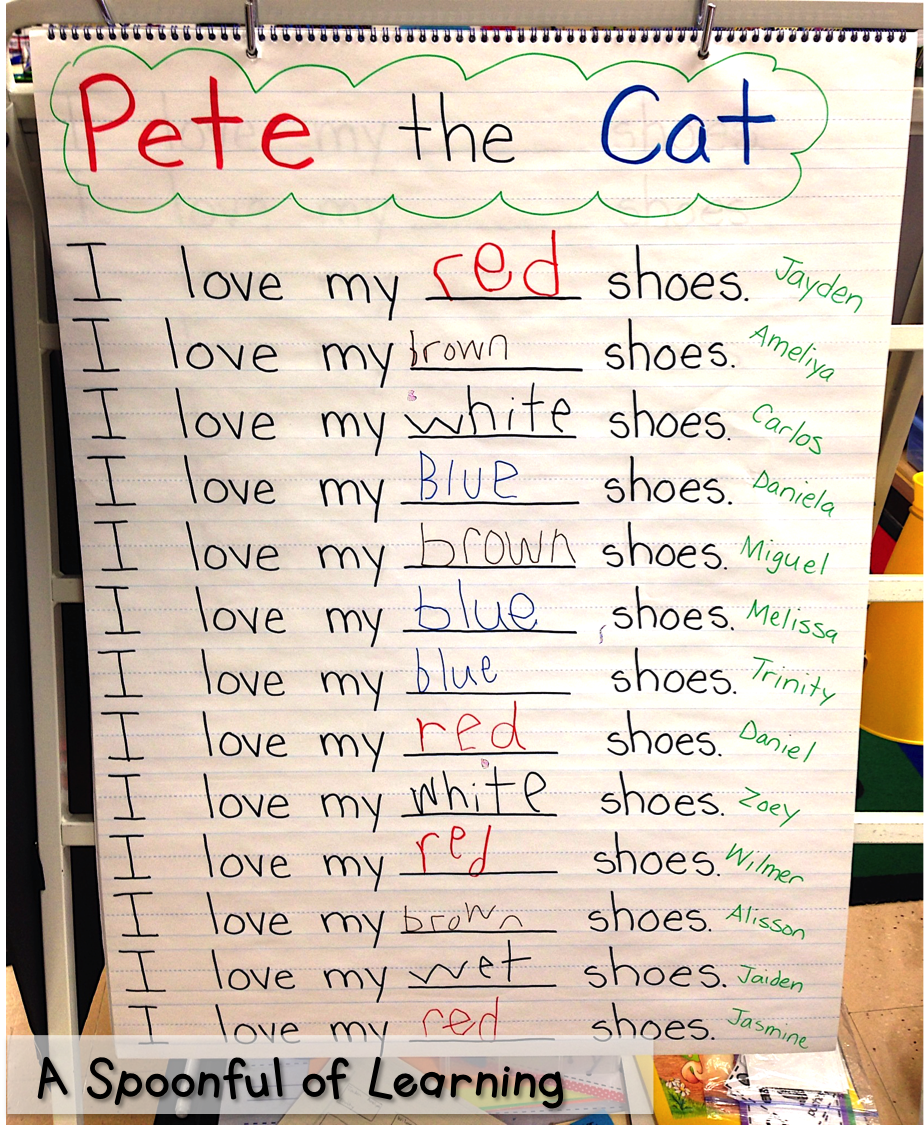 Pete the Cat
I love my red shoes. Jayden
I love my brown shoes. Ameliya
I love my white shoes. Carlos
I love my Blue shoes. Daniela
I love my brown shoes. Miguel
I love my blue shoes. Melissa
I love my blue shoes. Trinity
I love my red shoes. Daniel
I love my white shoes. Zoey
I love my red shoes. Wilmer
I love my brown shoes. Alisson
I love my wet shoes. Jaiden
I love my red shoes. Jasmine
A Spoonful of Learning